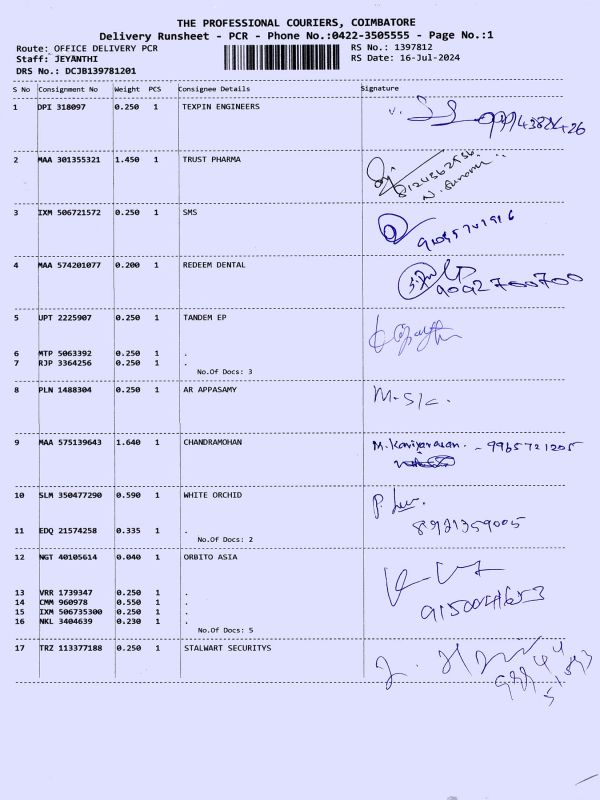 THE PROFESSIONAL COURIERS, COIMBATORE
Delivery Runsheet - PCR - Phone No.:0422-3505555 - Page No.:1
Route: OFFICE DELIVERY PCR RS No.: 1397812
Staff: JEYANTHI RS Date: 16-Jul-2024
DRS No.: DCJB139781201
S No Consignment No Weight PCS Consignee Details Signature
1 DPI 318097 0.250 1 TEXPIN ENGINEERS
2 MAA 301355321 1.450 1 TRUST PHARMA
3 IXM 506721572 0.250 1 SMS
4 MAA 574201077 0.200 1 REDEEM DENTAL
9092700700
5 UPT 2225907 0.250 1 TANDEM EP
6 MTP 5063392 0.250 1 .
7 RJP 3364256 0.250 1 .
No.Of Docs: 3
8 PLN 1488304 0.250 1 AR APPASAMY
9 MAA 575139643 1.640 1 CHANDRAMOHAN M. Kaniyarasan. - 9965721205
10 SLM 350477290 0.590 1 WHITE ORCHID
8921359005
11 EDQ 21574258 0.335 1 .
No.Of Docs: 2
12 NGT 40105614 0.040 1 ORBITO ASIA
13 VRR 1739347 0.250 1 .
14 CMM 960978 0.550 1 .
15 IXM 506735300 0.250 1 .
16 NKL 3404639 0.230 1 .
No.Of Docs: 5
17 TRZ 113377188 0.250 1 STALWART SECURITYS